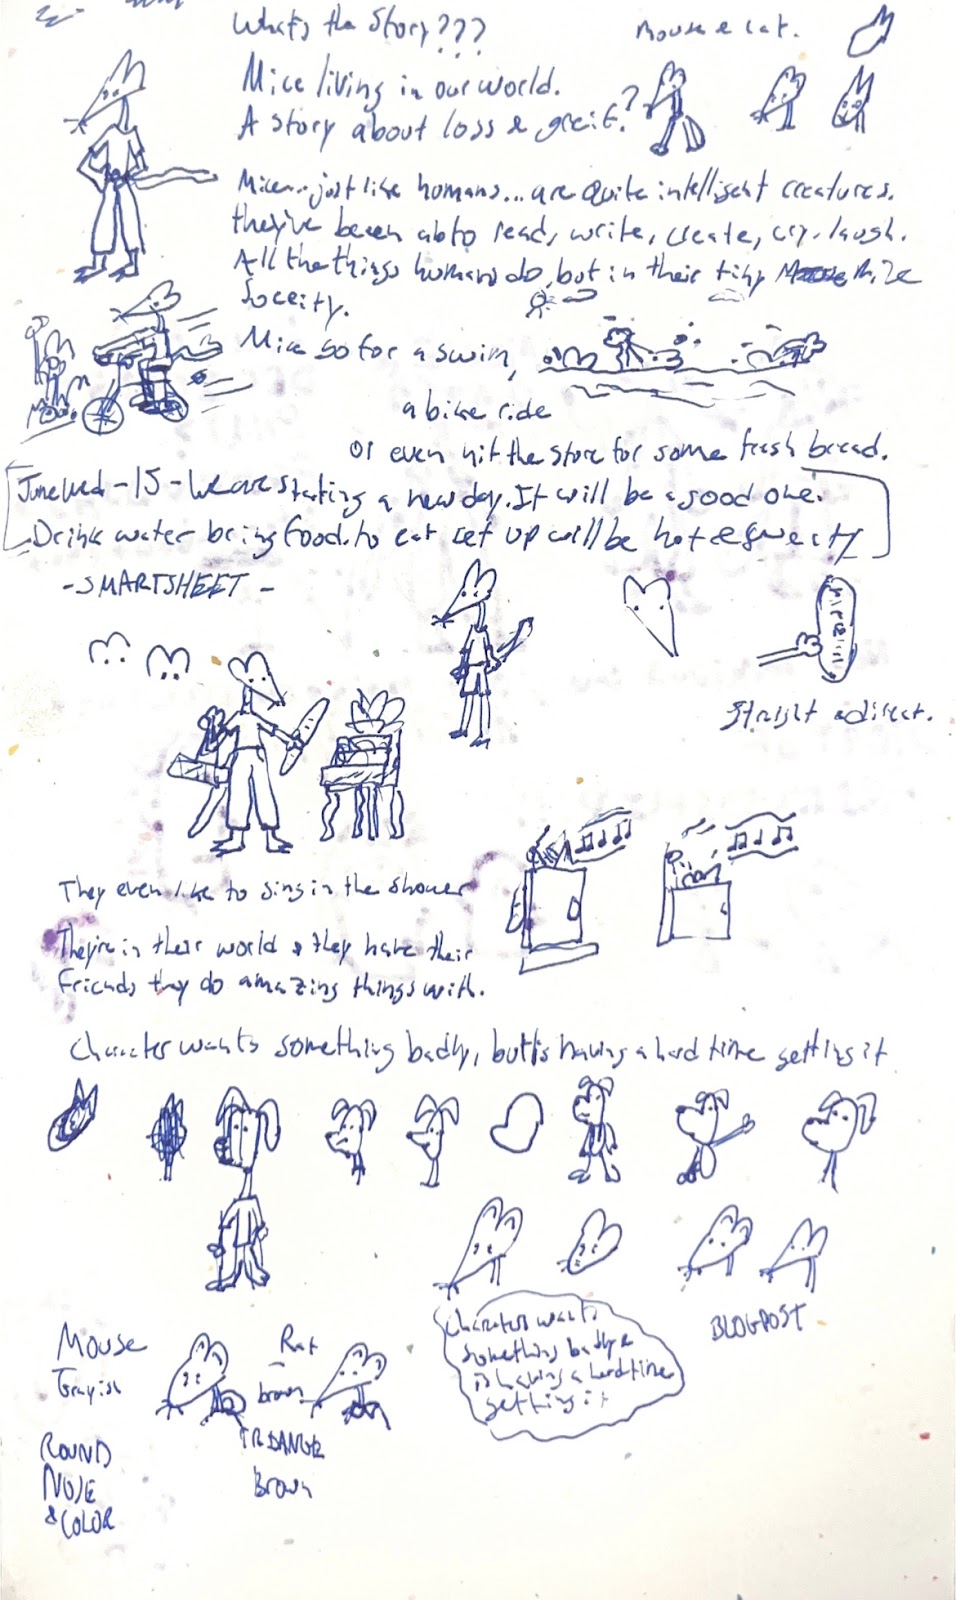 What's the Story???
Mouse & Cat.
Mice living in our world.
A story about loss & greit.?
Mice...just like humans...are quite intelligent creatures.
they've been ab to read, write, create, cry, laugh.
All the things humans do, but in their tiny Mice
Soceity.
Mice go for a swim,
a bike ride
or even hit the store for some fresh bread.
June Wed - 15 - We are starting a new day. It will be a good one.
Drink water bring food. to eat set up will be hot & sweaty
- SMARTSHEET -
Straight & direct.
They even like to sing in the shower
They're in their world & they have their
friends they do amazing things with.
Character wants something badly, but is having a hard time getting it
BLOGPOST
Character wants
something badly &
is having a hard time
getting it
Mouse
Grayish
ROUND
NOSE
& COLOR
Rat
brown
TRIANGE
Brown